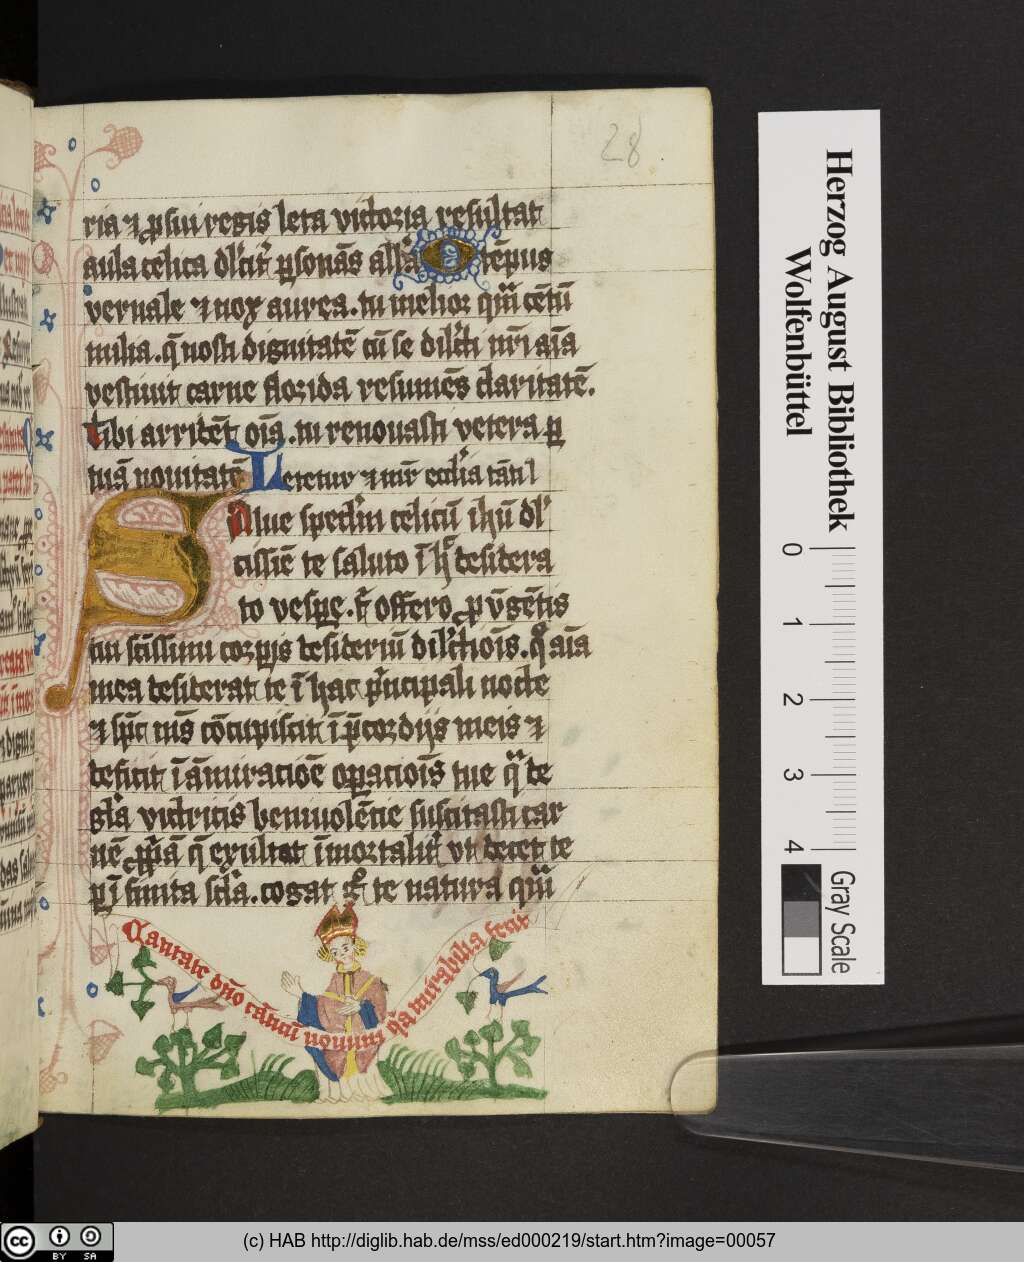 28
ria ⁊ ꝓ sui regis leta victoria resultat
aula celica dulcit͛ ꝑsonās all͛a O tēpus
vernale ⁊ nox aurea. tu melior qm̄ cētū
milia. q̄ nosti dignitatē cū se dilc̄i nr̄i aīa
vestiuit carne florida resumēs claritatē.
Tibi arridēt oīa. tu renouasti vetera ꝑ
tuā nouitatē Letetur ⁊ mr̄ eccl͛ia
Salue specl͛m celicū ihū dl͛
cissīe te saluto ī desidera
to vespe. offero
tui sc̄issimi corꝑis desideriū aīa
mea desiderat te ī hac p͛ncipali nocte
⁊ sp̄c ms̄ cōcupiscit ī p̄cordijs meis ⁊
deficit ī āmiracioē oꝑacioīs tue q͛ de
gl͛a victricis beniuolētie suscitasti car
nē ꝓp͛ā q̄ exultat īmortalit͛ vt decet te
finita cogat te natura qm̄
Cantate dn̄o cāticū nouum q͛a mirabilia fecit
Herzog August Bibliothek
Wolfenbüttel
0 1 2 3 4
Gray Scale
cc BY SA
(c) HAB http://diglib.hab.de/mss/ed000219/start.htm?image=00057